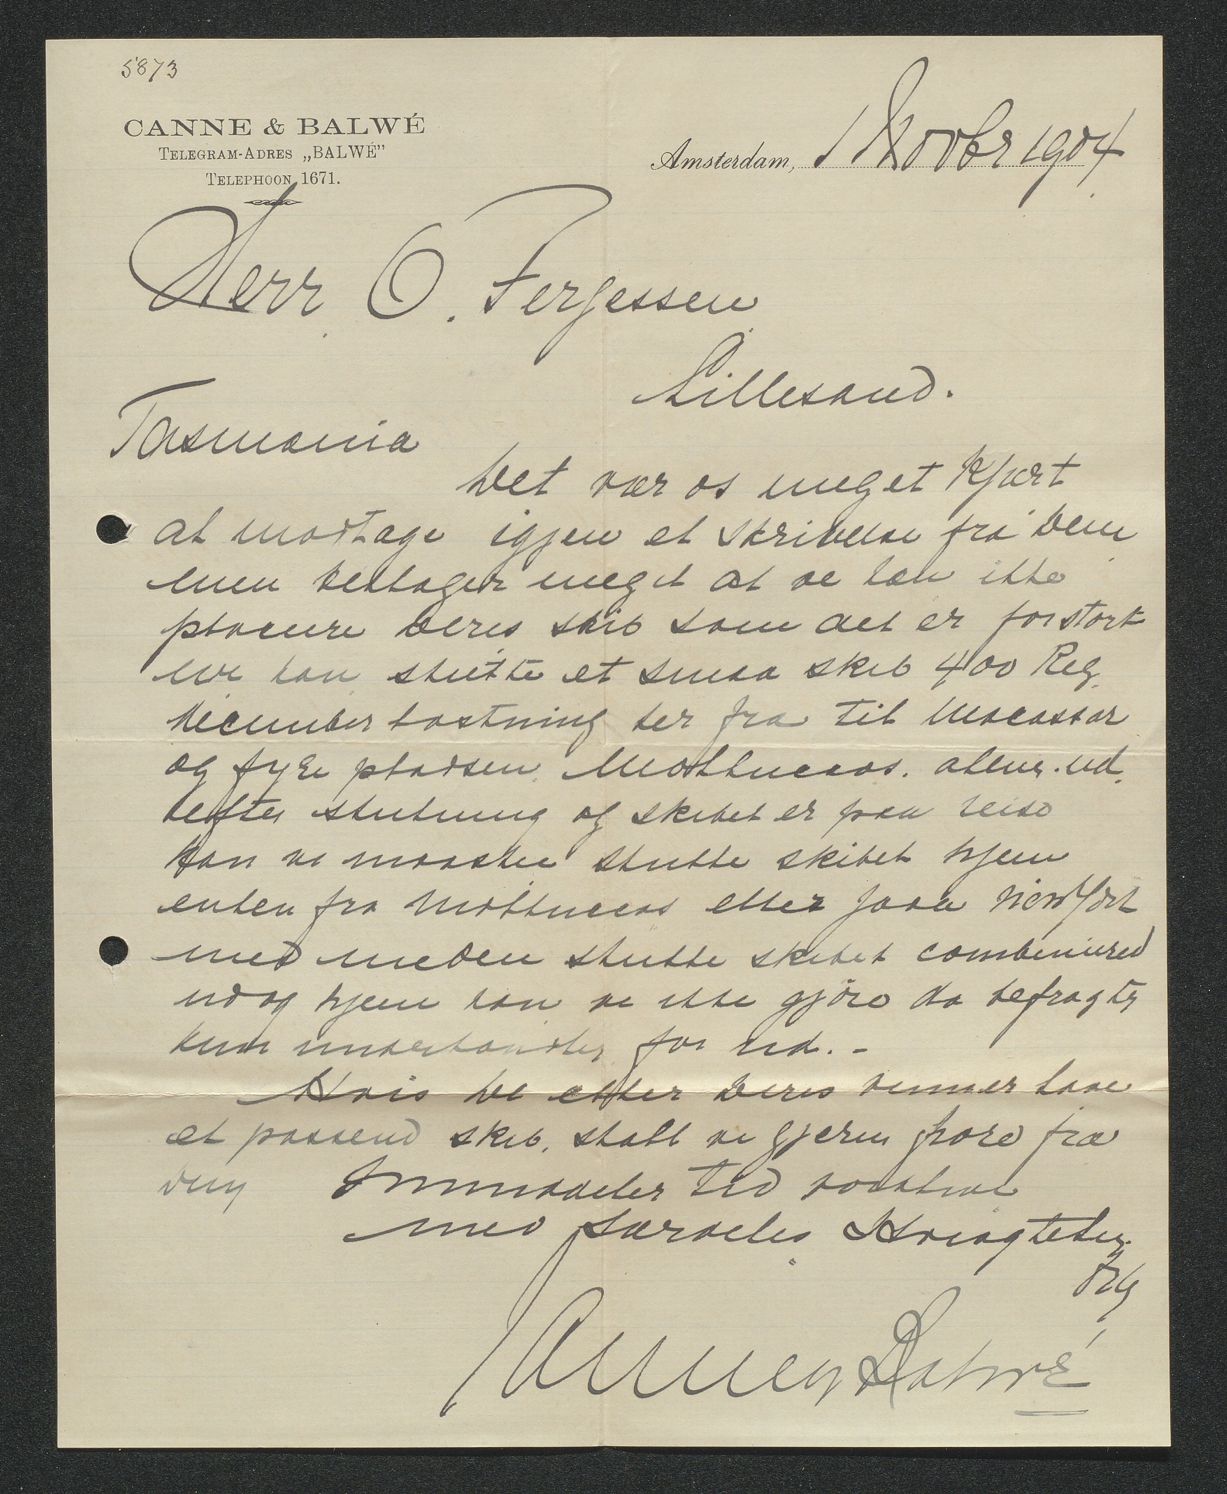 5873
CANNE & BALWÉ
TELEGRAM-ADRES „BALWÉ”
TELEPHOON 1671.
Amsterdam, 1 Novbr 1904
Herr O. Terjessen
Lillesand.
Tasmania
Det var os meget kjært
at modtage igjen et skrivelse fra Dem
men beklager meget at vi kan ikke
placere Deres skib som det er for stort
vi kan slutte et smaa skib 400 Reg.
December lastning her fra til Macassar
og fyre pladsen Molluccas.
slutning og skibet er paa reise
kan vi maaske slutte skibet hjem
enten fra Molluccas eller Java New York
med slutte skibet combinired
ud og hjem kan vi ikke gjöre da befragter
kun underhandler for ud. -
Hvis De eller Deres venner have
et passend skib, skall vi gjerne höre fra
Dem
med særdeles Höiagtelse
Canne & Balwé